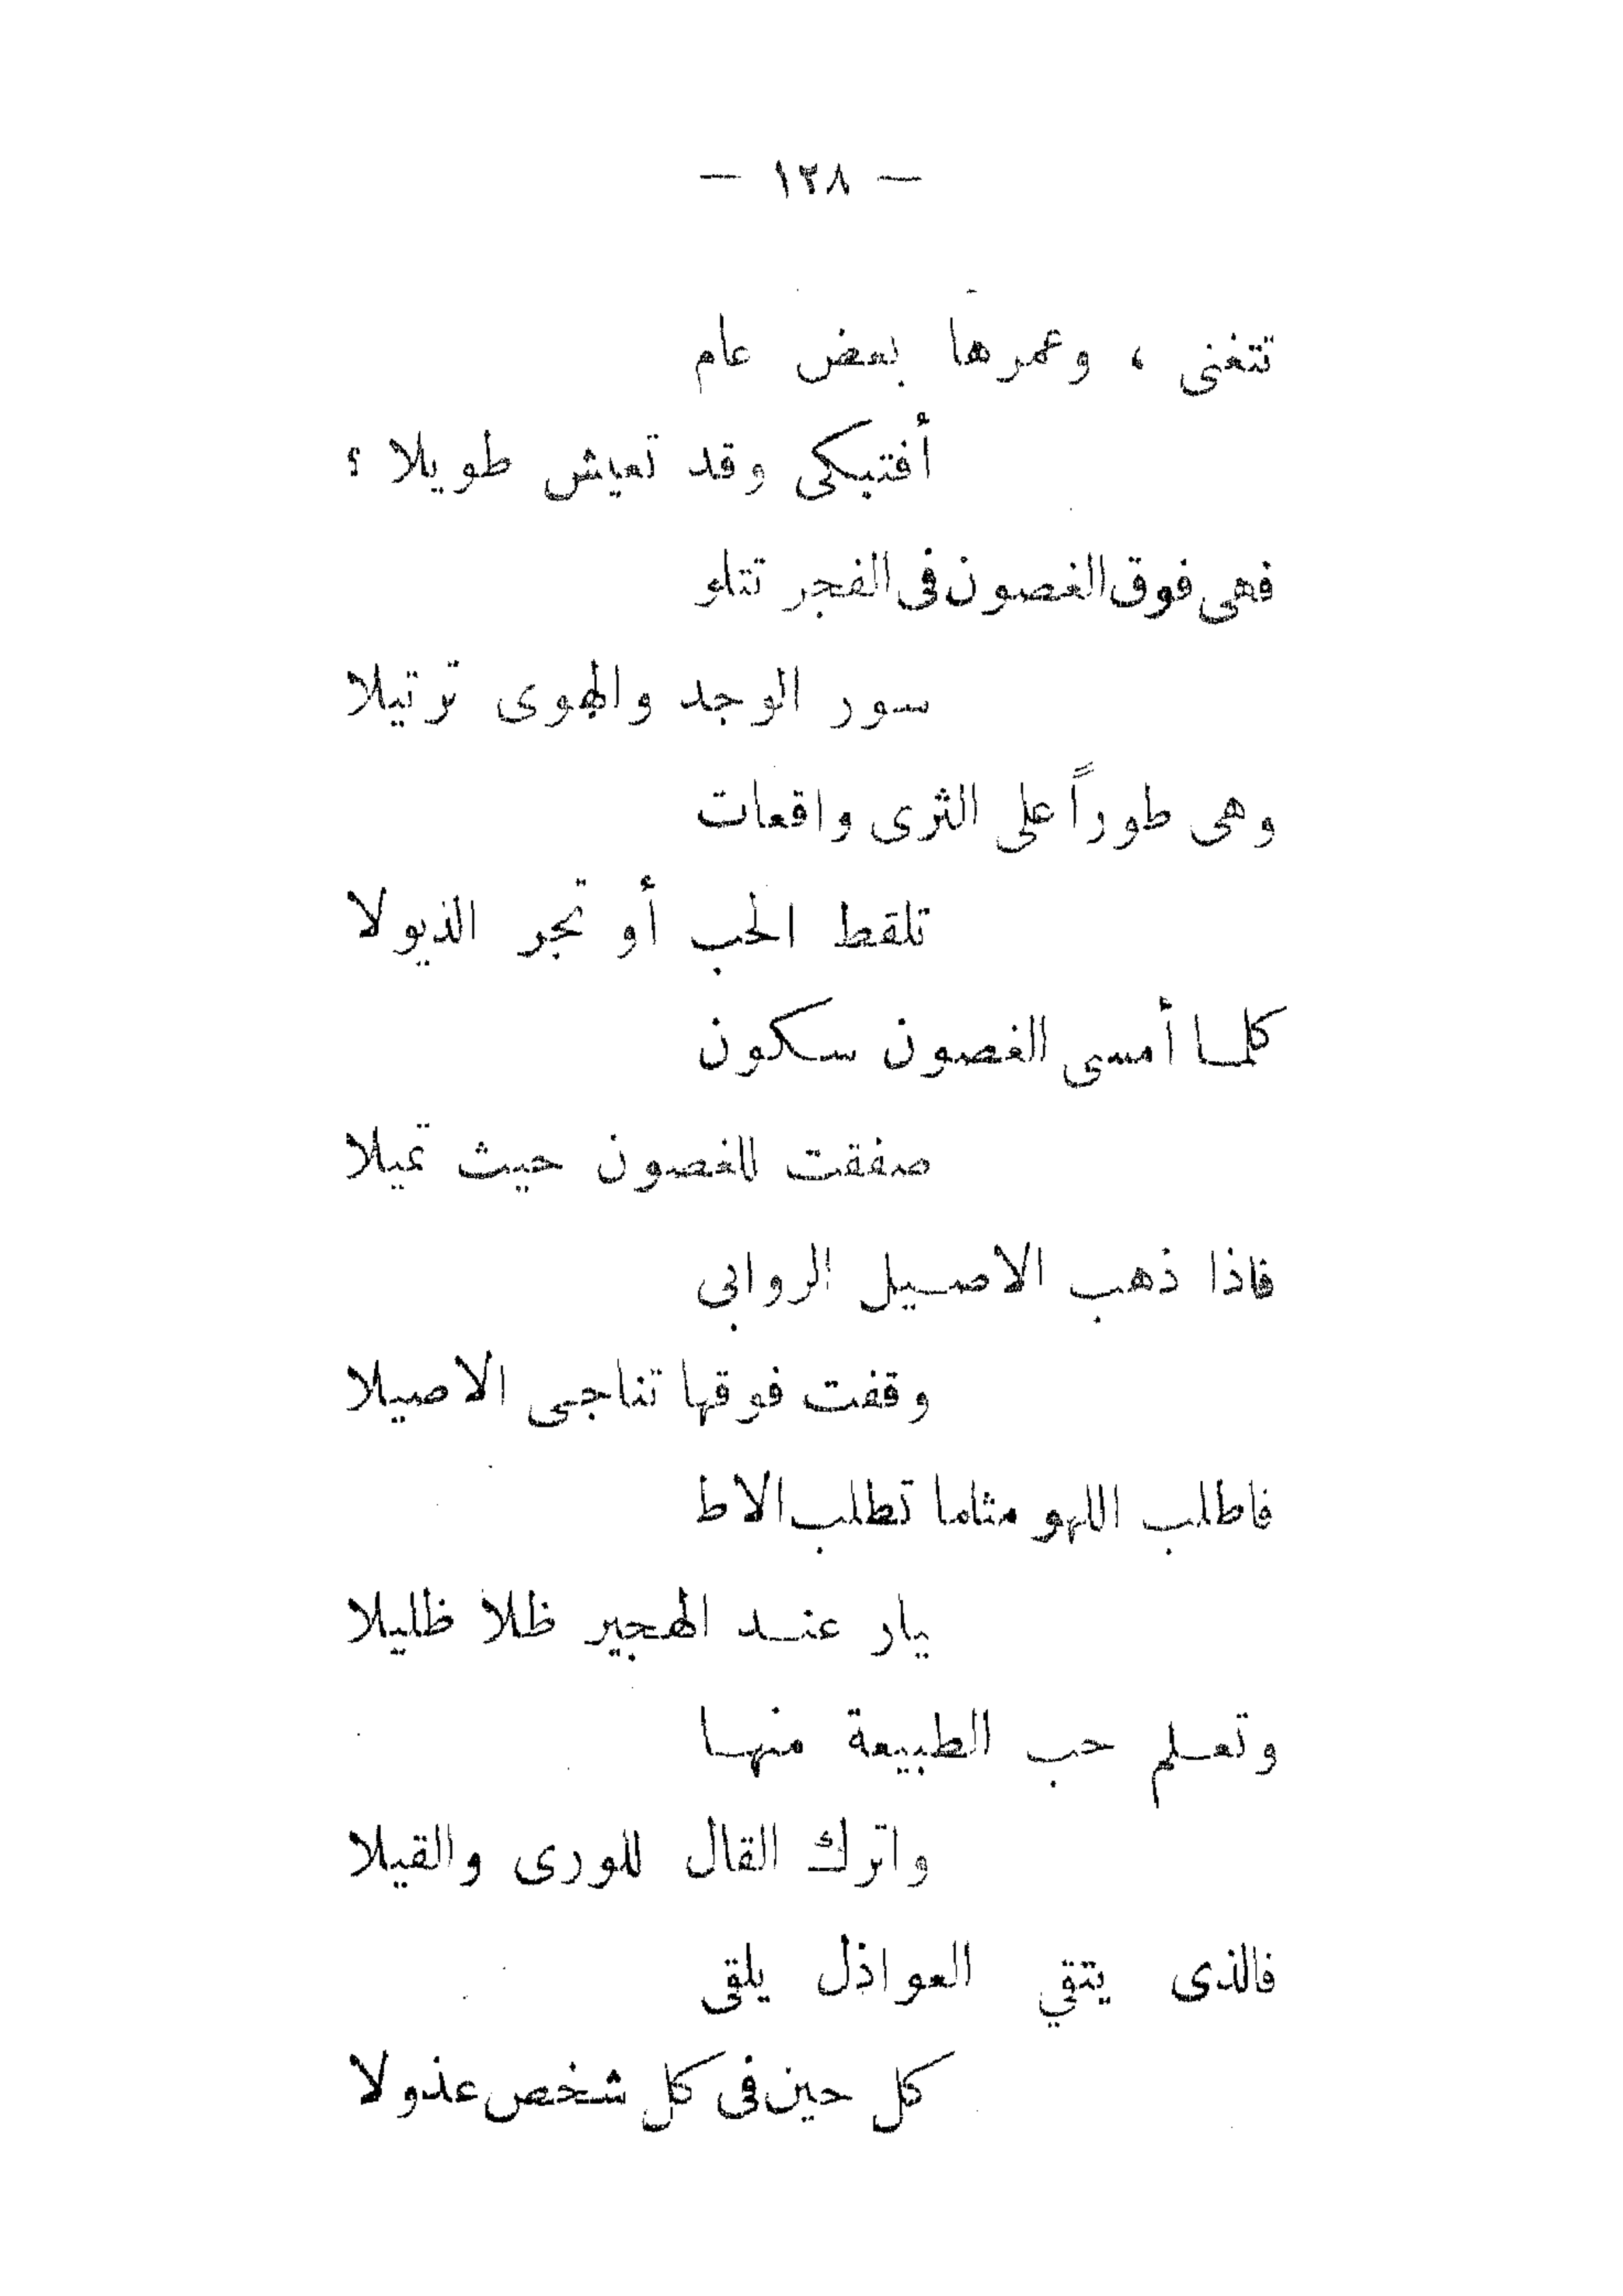 — ١٢٨ —
تتغنى ، وعمرها بعض عام
أفتبكى وقد تعيش طويلا ؟
فهى فوق الغصون فى الفجر تتلو
سور الوجد والهوى ترتيلا
وهى طوراً على الثرى واقعات
تلقط الحب أو تجر الذيولا
كلما أمسى الغصون سكون
صفقت للغصون حيث تميلا
فاذا ذهب الاصيل الروابى
وقفت فوقها تناجى الاصيلا
فاطلب اللهو مثلما تطلب الاط
يار عند الهجير ظلا ظليلا
وتعلم حب الطبيعة منها
واترك القال للورى والقيلا
فالذى يتقي العواذل يلقى
كل حين فى كل شخص عذولا